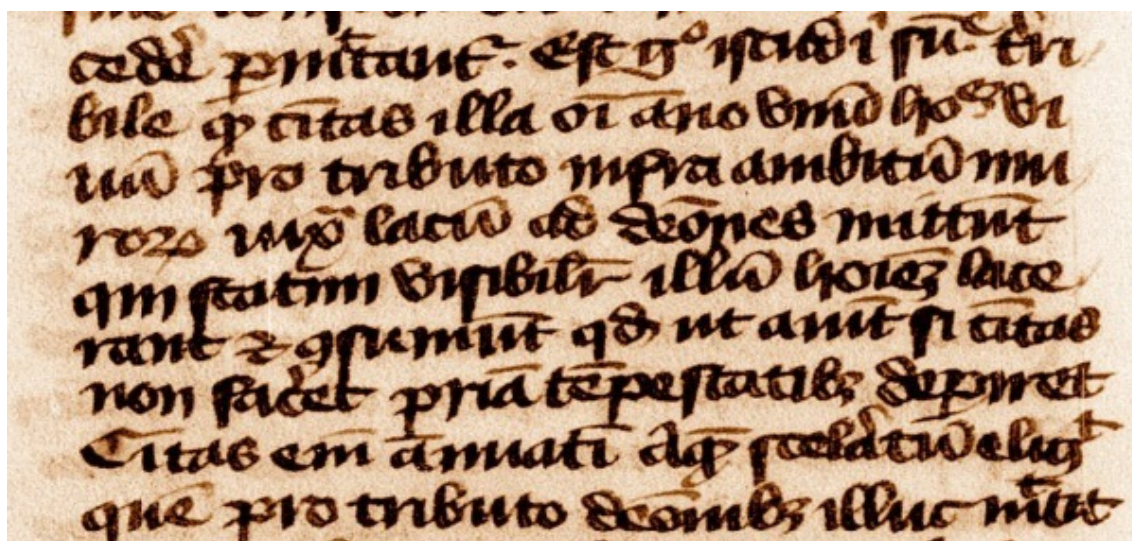 cedē pmittant̄. Est gͦ istud ī sūᵉ t̄ri
bile qp̄ cītas illa oī āno vnū hoᵉꝫ vi
uū pro tributo infra ambitū mu
roꝝ iuxᵃ lacū ad deōnes mittūt
qui statim visibilr̄ illū hoīeꝫ lace
rant ⁊ ꝯsumūt qd̄ ut aiūt si cītas
non facēet pria tēpestatibꝫ depiret
Cītas em̄ ānuatī aliqȝ scelātū eligᵗ
quē pro tributo deōnibꝫ illuc mᵗtit